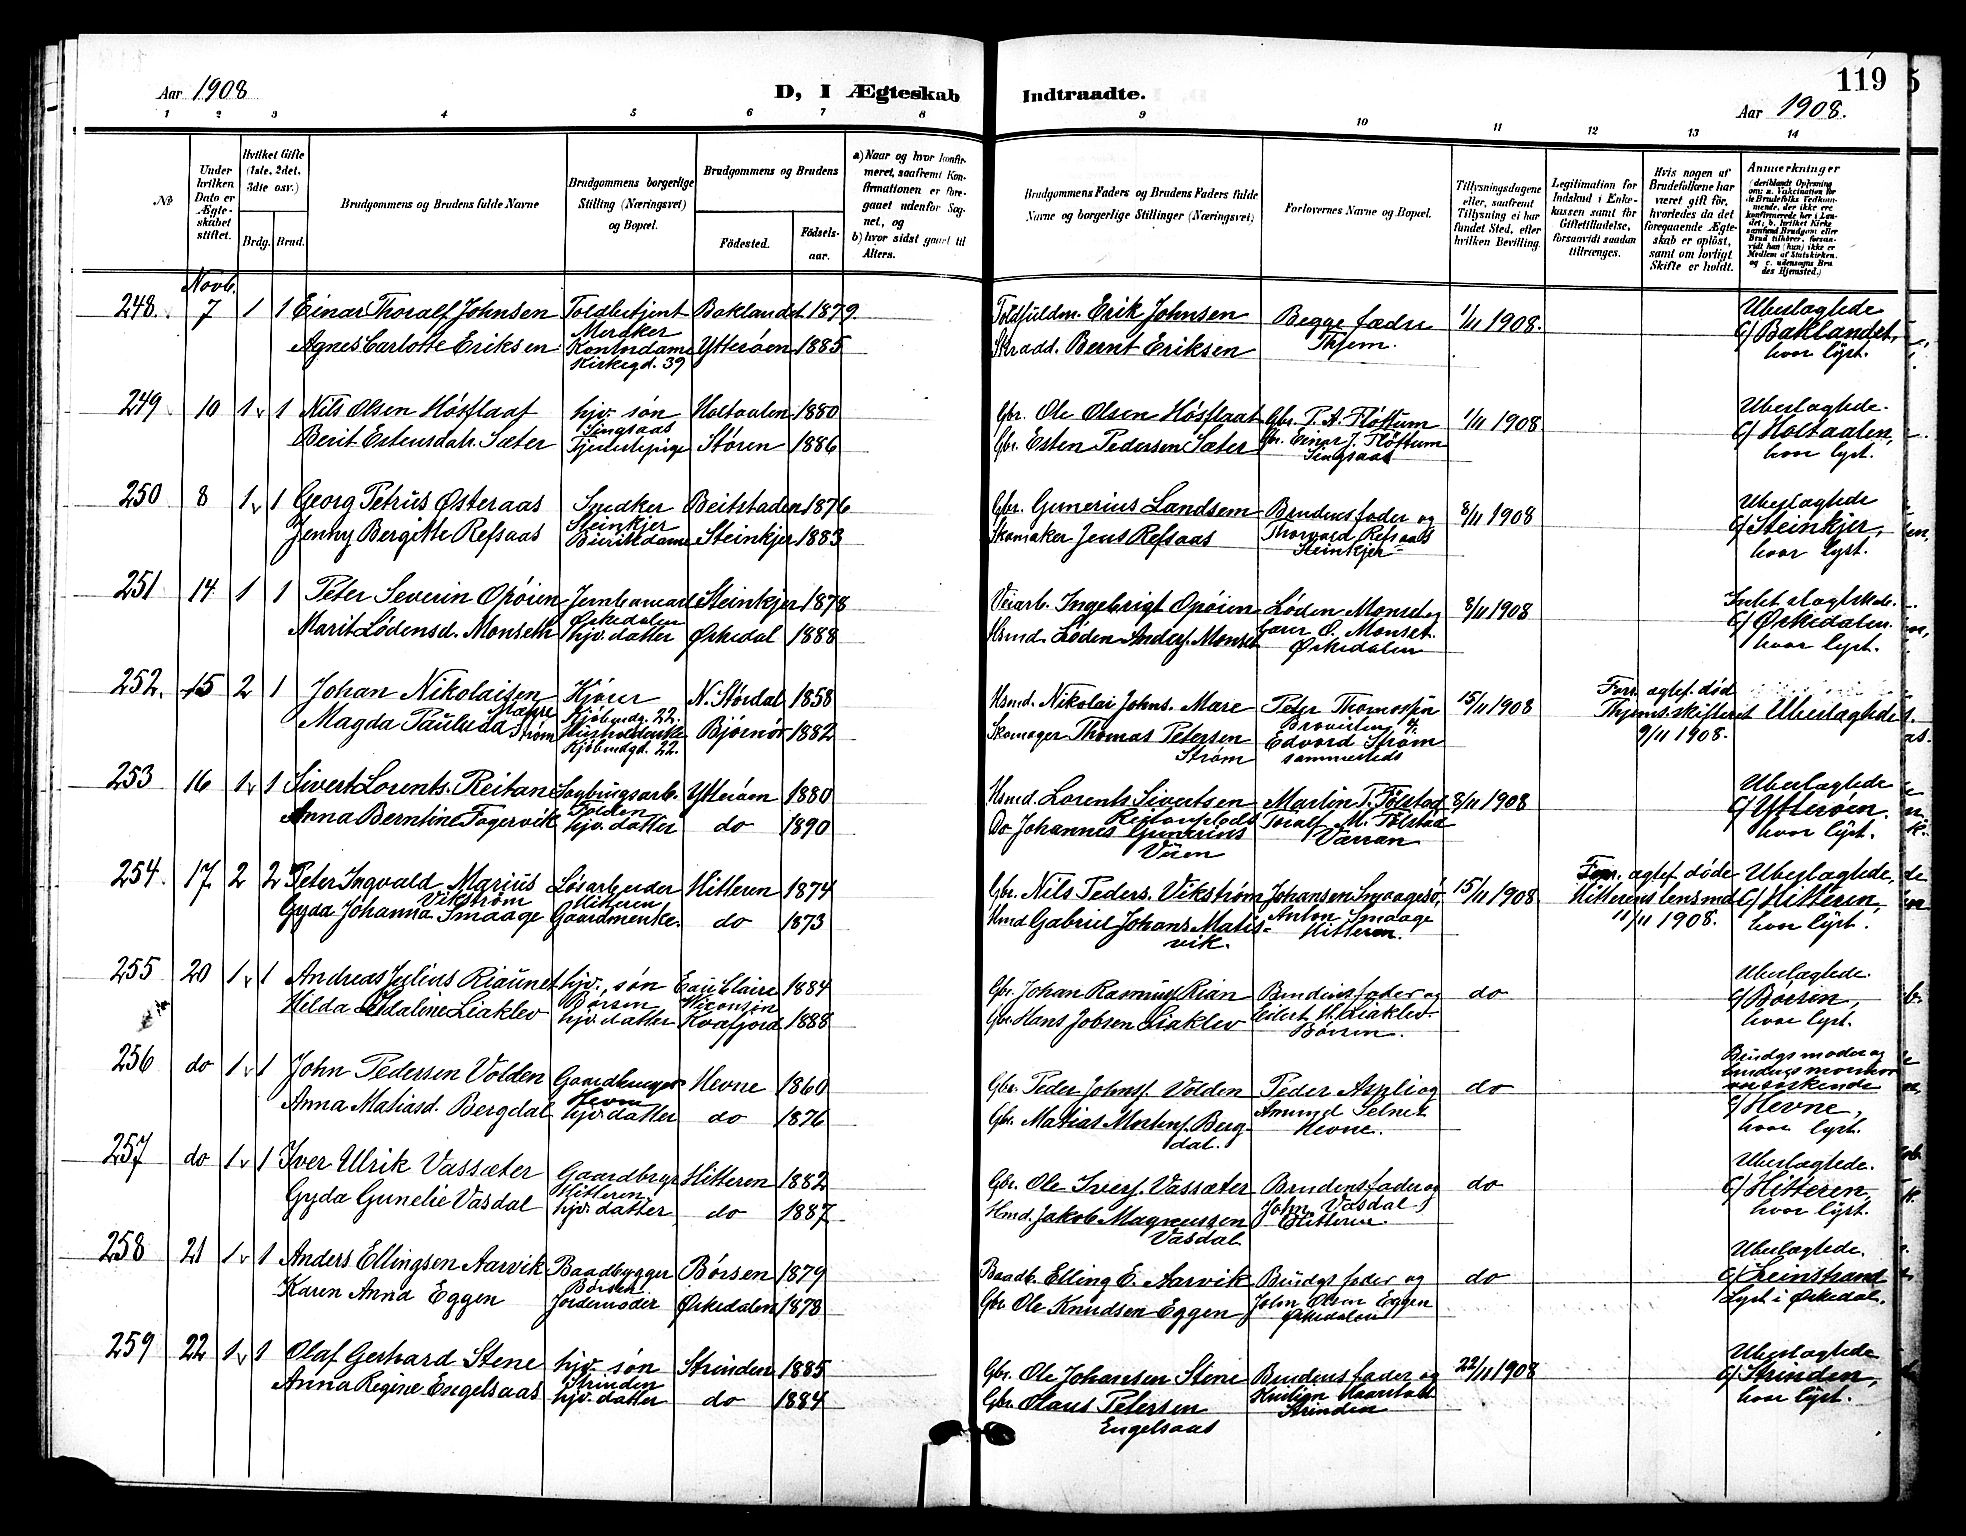 119
Aar 1908
D, I Ægteskab Indtraadte.
Aar 1908.
1 2 3 4 5 6 7 8 9 10 11 12 13 14
No
Under hvilken Dato er Ægteskabet stiftet.
Hvilket Gifte (1ste, 2det, 3die osv.)
Brdg. Brud.
Brudgommens og Brudens fulde Navne
Brudgommens borgerlige Stilling (Næringsvei) og Bopæl.
Brudgommens og Brudens
Fødested.
Fødselsaar.
a) Naar og hvor konfirmeret, saafremt Konfirmationen er foregaaet udenfor Sognet, og
b) hvor sidst gaaet til Alters.
Brudgommens Faders og Brudens Faders fulde Navne og borgerlige Stillinger (Næringsvei)
Forlovernes Navne og Bopæl.
Tillysningsdagene eller, saafremt Tillysning ei har fundet Sted, efter hvilken Bevilling.
Legitimation for Indskud i Enkekassen samt for Giftetilladelse, forsaavidt saadan tiltrænges.
Hvis nogen af Brudefolkene har været gift før, hvorledes da det foregaaende Ægteskab er opløst, samt om lovligt Skifte er holdt.
Anmærkninger
Novb.
248. 7 1 1 Einar Thoralf Johnsen Toldbetjent Baklandet 1879. Toldfuldm. Erik Johnsen Begge fædre 1/11 1908. Ubeslægtede
Meraker
Agnes Carlotte Eriksen Kontordame Ytterøen 1885 Skradd. Bernt Eriksen Thjem. C/ Baklandet,
Kirkegd. 39 hvor lyst.
249 10 1 1 Nils Olsen Høsflaat hjv. søn Holtaalen 1880 Gbr. Ole Olsen Høsflaat Gbr. P. A. Fløttum 1/11 1908 Ubeslægtede.
Singsaas Gbr. Einar J. Fløttum C/ Holtaalen,
Berit Estensdatr. Sæter Tjenestepige Støren 1886 Gbr. Esten Pedersen Sæter Singsaas hvor lyst.
250 8 1 1 Georg Petrus Østeraas Snedker Beitstaden 1876 Gbr. Gunerius Landsem Brudens fader og 8/11 1908 Ubeslægtede
Steinkjer C/ Steinkjer,
Jenny Bergitte Refsaas Steinkjer 1883 Skomaker Jens Refsaas Thorvald Refsaas hvor lyst.
Steinkjer
251 14 1 1 Peter Severin Opøien Steinkjer 1878 Veiarb. Ingebrigt Opøien Løden Monset og 8/11 1908
Ørkedalen C/ Ørkedalen.
Marit Lødensd. Monseth hjv. datter Ørkedal 1888 Hsmd. Løden Anders. Monset O. Monset. hvor lyst.
Ørkedalen
252. 15 2 1 Johan Nikolaisen Kjører N. Stördal 1858 Hsmd. Nikolai Johns. Mare Peter Thomas 15/11 1908 Forr. ægtef. død
Kjøbmdg. 22. Thjems. skifteret Ubeslægtede
Magda Paulina Strøm Bjørnør 1882 Skomager Thomas Petersen Edvard Strøm 9/11 1908.
Kjøbmdgd. 22. Strøm sammesteds
253 16 1 1 Sivert Lorents. Reitan Sagbrugsarb. Ytterøen 1880 Hsmd. Lorents Sivertsen Martin T. Følstad 8/11 1908 Ubeslægtede
Reitanplads C/ Ytterøen.
Anna Berntine Fagervik hjv. datter do 1890 Do Johannes Gunerius Toralf M. Følstad hvor lyst.
Viien Værran
254. 17 2 2 Peter Ingvald Marius Løsarbeider Hitteren 1874 Gbr. Nils Peders. Vikstrøm Johansen Smaagesö, 15/11 1908 Forr. ægtef. døde Ubeslægtede,
Vikstrøm Hitteren Anton Smaage Hitterens lensmd C/ Hitteren,
Gyda Johanna Smaage Gaardmenke. do 1873 Hsmd Gabriel Johans. Matisvik. Hitteren. 11/11 1908. hvor lyst.
255 20 1 1 Andreas Julius Riaunet hjv. søn Eau Claire 1884 Gbr. Johan Rasmus Rian Brudens fader og do Ubeslægtede.
Børsen Wisconsin C/ Börsen,
Hilda Liaklev hjv. datter Kvæfjord 1888 Gbr. Hans Jobsen Liaklev Eilert H. Liaklev hvor lyst.
Börsen.
256 do 1 1 John Pedersen Volden Gaardbruger Hevne 1860 Gbr. Peder Johns. Volden Peder Aspli og do Brudgs moder og
Hevne
Anna Matiasd. Bergdal hjv. datter do 1876 Gbr. Matias Mortens. Bergdal. Amund Selnes C/ Hevne,
Hevne. hvor lyst.
257 do 1 1 Iver Ulrik Vassæter Gaardbrgr Hitteren 1882 Gbr. Ole Ivers. Vassæter Brudens fader og do Ubeslægtede.
Hitteren C/ Hitteren,
Gyda Gunelie Vasdal hjv. datter do 1887 Hmd. Jakob Magnussen John Vasdal hvor lyst.
Vasdal Hitteren.
258 21 1 1 Anders Ellingsen Aarvik Baadbygger Børsen 1879 Baadb. Elling E. Aarvik Brudgs fader og do Ubeslægtede.
Börsen C/ Leinstrand
Karen Anna Eggen Jordemoder Ørkedalen 1878 Gbr. Ole Knudsen Eggen John Olsen Eggen Lyst i Ørkedal.
Ørkedalen
259 22 1 1 Olaf Gerhard Stene hjv. søn Strinden 1885 Gbr. Ole Johansen Stene Brudens fader og 22/11 1908 Ubeslægtede
Strinden C/ Strinden,
Anna Regine Engelsaas hjv. datter do 1884 Gbr. Olaus Petersen Strinden hvor lyst.
Engelsaas